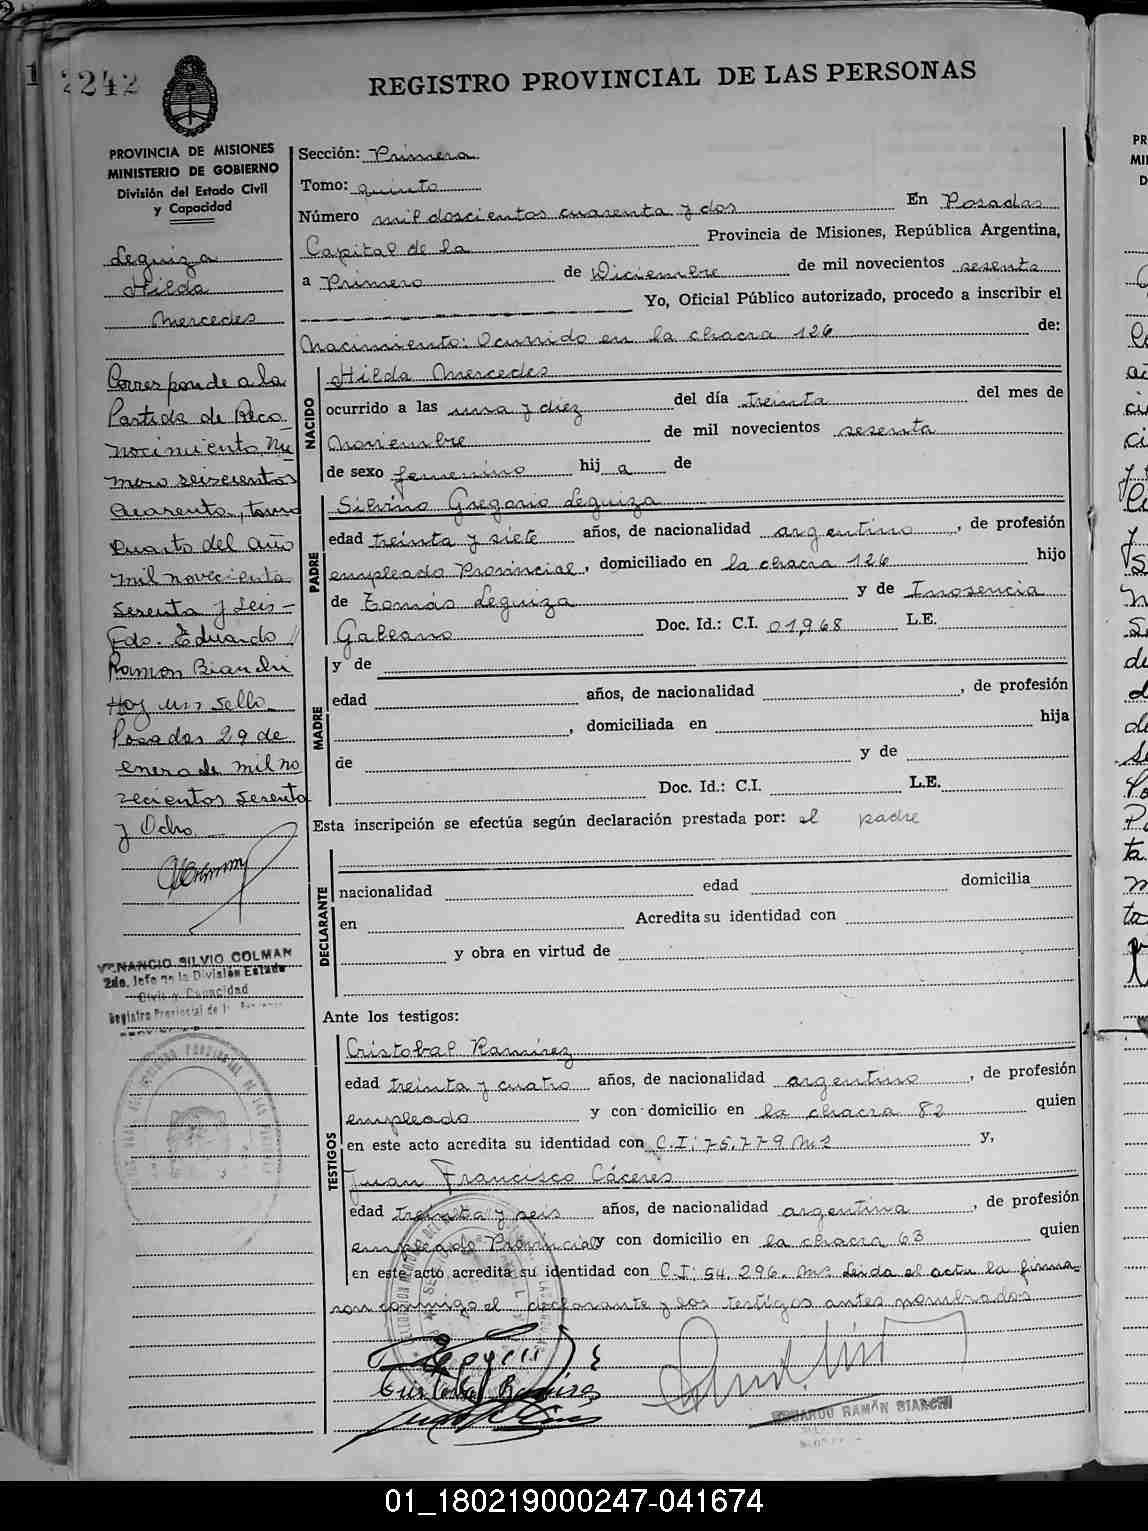 2242
REGISTRO PROVINCIAL DE LAS PERSONAS
PROVINCIA DE MISIONES
MINISTERIO DE GOBIERNO
División del Estado Civil
y Capacidad
Leguiza
Hilda
Mercedes
Corresponde a la
Partida de Reco
nocimiento Nu
mero seiscientos
Cuarenta, tomo
Cuarto del año
mil novecienta
sesenta y seis -
Fdo. Eduardo
Ramon Bianchi
Hay un sello
Posadas 29 de
enero de mil no
vecientos sesenta
y Ocho
VENANCIO SILVIO COLMAN
2do. Jefe de la División Estado
Civil y Capacidad
Registro Provincial de l
Sección: Primera
Tomo: quinto
Número mil doscientos cuarenta y dos En Posadas
Capital de la Provincia de Misiones, República Argentina,
a Primero de Diciembre de mil novecientos sesenta
Yo, Oficial Público autorizado, procedo a inscribir el
Nacimiento: Ocurrido en la chacra 126 de:
NACIDO
Hilda Mercedes
ocurrido a las una y diez del día treinta del mes de
Noviembre de mil novecientos sesenta
de sexo femenino hij a de
PADRE
Silvino Gregorio Leguiza
edad treinta y siete años, de nacionalidad argentino, de profesión
empleado Provincial, domiciliado en la chacra 126 hijo
de Tomás Leguiza y de Inosencia
Galeano Doc. Id.: C.I. 01,968 L.E.
MADRE
y de
edad años, de nacionalidad , de profesión
, domiciliada en hija
de y de
Doc. Id.: C.I. L.E.
Esta inscripción se efectúa según declaración prestada por: el padre
DECLARANTE
nacionalidad edad domicilia
en Acredita su identidad con
y obra en virtud de
Ante los testigos:
TESTIGOS
Cristobal Ramírez
edad treinta y cuatro años, de nacionalidad argentino, de profesión
empleado y con domicilio en la chacra 82 quien
en este acto acredita su identidad con C.I: 75.779 Ms y,
Juan Francisco Cáceres
edad treinta y seis años, de nacionalidad argentina, de profesión
empleado Provincial y con domicilio en la chacra 63 quien
en este acto acredita su identidad con C.I: 54.296. Ms Leida el acta la firma-
ron conmigo el declarante y los testigos antes nombrados
Cristobal Ramirez
EDUARDO RAMÓN BIANCHI
01_180219000247-041674